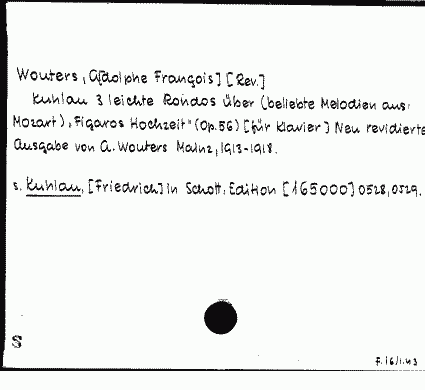 Wouters, A[dolphe François] [Rev.]
Kuhlau 3 leichte Rondos über (beliebte Melodien aus:
Mozart) "Figaros Hochzeit" (Op. 56) [für Klavier] Neu revidierte
Ausgabe von A. Wouters Mainz, 1913-1918.
s. Kuhlau, [Friedrich] in Schott, Edition [165000] 0528, 0529.
S
F. 16/1.43